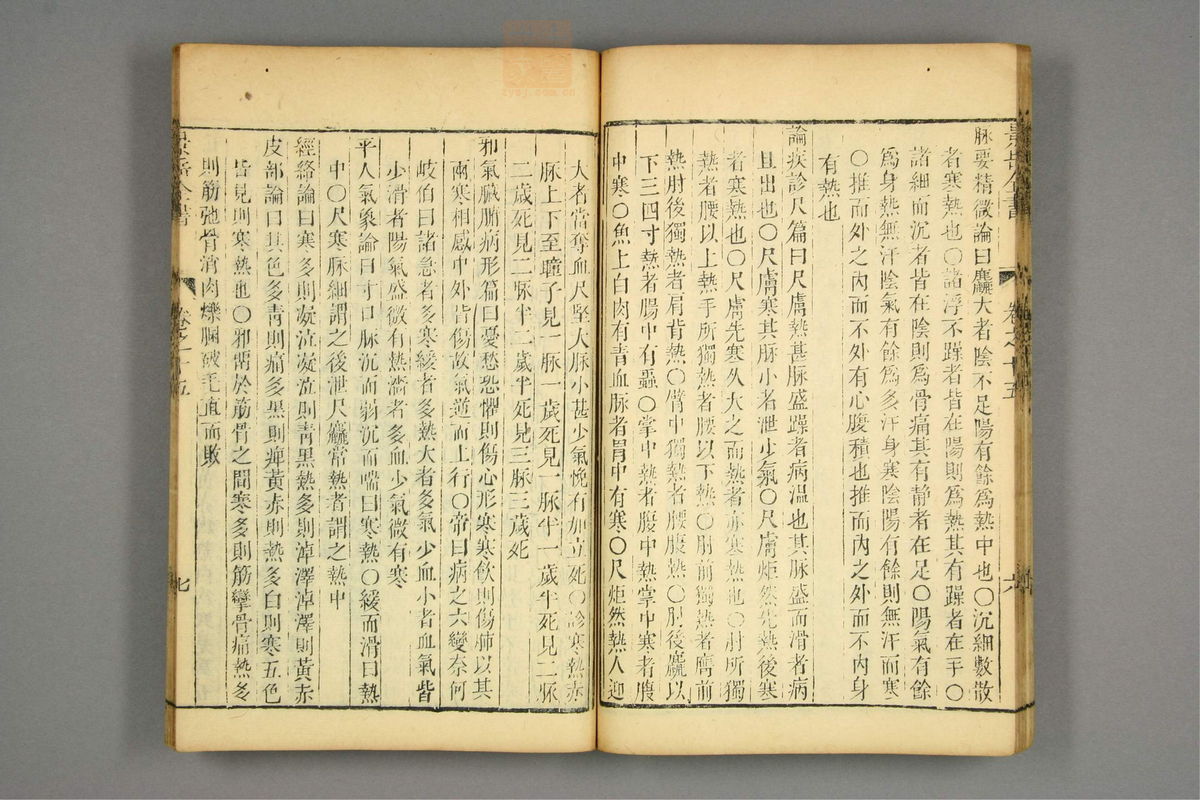 脉要精微論曰麤大者陰不足陽有餘爲熱中也○沉細數散
者寒熱也○諸浮不躁者皆在陽則爲熱其有躁者在手○
諸細而沉者皆在陰則爲骨痛其有靜者在足○陽氣有餘
爲身熱無汗陰氣有餘爲多汗身寒陰陽有餘則無汗而寒
○推而外之內而不外有心腹積也推而內之外而不內身
有熱也
論疾診尺篇曰尺膚熱甚脈盛躁者病溫也其脈盛而滑者病
且出也○尺膚寒其脈小者泄少氣○尺膚炬然先熱後寒
者寒熱也○尺膚先寒久大之而熱者亦寒熱也○肘所獨
熱者腰以上熱手所獨熱者腰以下熱○肘前獨熱者膺前
熱肘後獨熱者肩背熱○臂中獨熱者腰腹熱○肘後麤以
下三四寸熱者腸中有蟲○掌中熱者腹中熱掌中寒者腹
中寒○魚上白肉有青血脉者胃中有寒○尺炬然熱人迎
景岳全書
卷之十五
六
大者當奪血尺堅大脉小甚少氣悗有加立死○診寒熱赤
脉上下至瞳子見一脉一歲死見一脉半一歲半死見二脉
二歲死見二脉半二歲半死見三脉三歲死
邪氣臟腑病形篇曰憂愁恐懼則傷心形寒寒飲則傷肺以其
兩寒相感中外皆傷故氣逆而上行○帝曰病之六變奈何
岐伯曰諸急者多寒緩者多熱大者多氣少血小者血氣皆
少滑者陽氣盛微有熱濇者多血少氣微有寒
平人氣象論曰寸口脉沉而弱沉而喘曰寒熱○緩而滑曰熱
中○尺寒脉細謂之後泄尺麤常熱者謂之熱中
經絡論曰寒多則凝泣凝泣則青黑熱多則淖澤淖澤則黃赤
皮部論曰其色多青則痛多黑則痺黃赤則熱多白則寒五色
皆見則寒熱也○邪留於筋骨之間寒多則筋攣骨痛熱多
則筋弛骨消肉爍䐃破毛直而敗
景岳全書
卷之十五
七